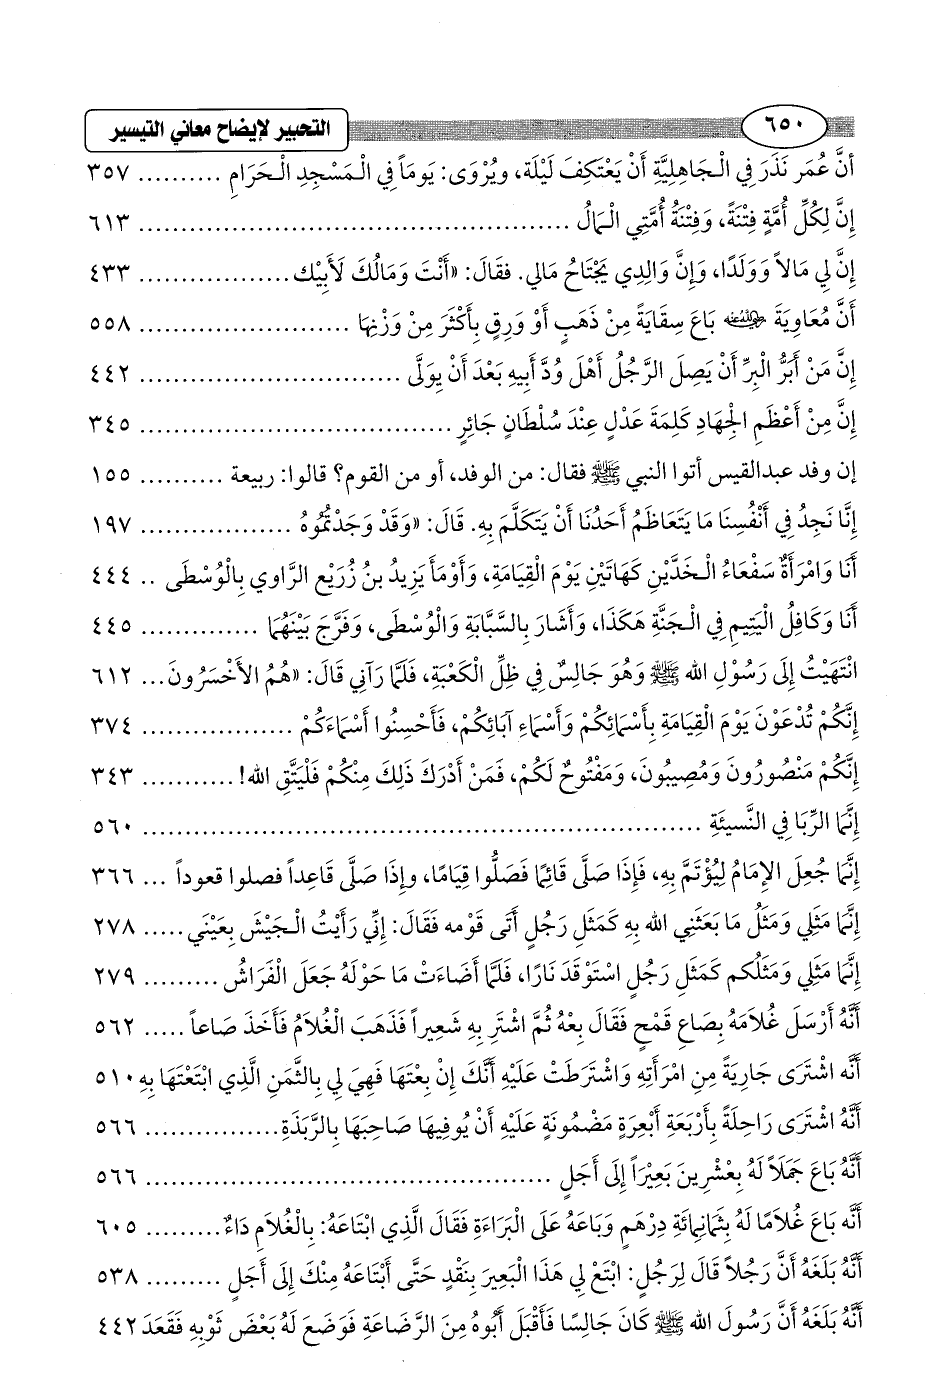 ٦٥٠ التحبير لإيضاح معاني التيسير
أنَّ عُمَر نَذَرَ فِي الْجَاهِلِيَّةِ أَنْ يَعْتَكِفَ لَيْلَة، ويُرْوَى: يَوماً فِي الْمَسْجِدِ الْحَرَامِ .......... ٣٥٧
إِنَّ لِكُلِّ أُمَّةٍ فِتْنَةً، وَفِتْنَةُ أُمَّتِي الْمَالُ .................................................. ٦١٣
إِنَّ لِي مَالاً وَوَلَدًا، وَإِنَّ وَالِدِي يَجْتَاحُ مَالي. فقَالَ: «أَنْتَ وَمَالُكَ لَأَبِيْك ................. ٤٣٣
أَنَّ مُعَاوِيَةَ رضي الله عنه بَاعَ سِقَايَةً مِنْ ذَهَبٍ أَوْ وَرِقٍ بِأَكْثَرَ مِنْ وَزْنِهَا ......................... ٥٥٨
إِنَّ مَنْ أَبَرُّ الْبِرِّ أَنْ يَصِلَ الرَّجُلُ أَهْلَ وُدَّ أَبِيهِ بَعْدَ أَنْ يِوَلَّى ............................... ٤٤٢
إِنَّ مِنْ أَعْظَمِ الْجِهَادِ كَلِمَةَ عَدْلٍ عِنْدَ سُلْطَانٍ جَائِرٍ ..................................... ٣٤٥
إن وفد عبدالقيس أتوا النبي ﷺ فقال: من الوفد، أو من القوم؟ قالوا: ربيعة .......... ١٥٥
إِنَّا نَجِدُ فِي أَنْفُسِنَا مَا يَتَعَاظَمُ أَحَدُنَا أَنْ يَتَكَلَّمَ بِهِ. قَالَ: «وَقَدْ وَجَدْتُمُوهُ .................. ١٩٧
أَنَا وَامْرَأَةٌ سَفْعَاءُ الْخَدَّيْنِ كَهَاتَيْنِ يَوْمَ الْقِيَامَةِ، وَأَوْمَأَ يَزِيدُ بنُ زُرَيْعِ الرَّاوي بِالْوُسْطَى .. ٤٤٤
أَنَا وَكَافِلُ الْيَتِيمِ فِي الْجَنَّةِ هَكَذَا، وَأَشَارَ بِالسَّبَّابَةِ وَالْوُسْطَى، وَفَرَّجَ بَيْنَهُمَا .............. ٤٤٥
انْتَهَيْتُ إِلَى رَسُوْلِ الله ﷺ وَهُوَ جَالِسٌ فِي ظِلِّ الْكَعْبَةِ، فَلَمَّا رَآنِي قَالَ: «هُمُ الأَخْسَرُونَ... ٦١٢
إِنَّكُمْ تُدْعَوْنَ يَوْمَ الْقِيَامَةِ بِأَسْمَائِكُمْ وَأَسْمَاءِ آبَائِكُمْ، فَأَحْسِنُوا أَسْمَاءَكُمْ .................. ٣٧٤
إِنَّكُمْ مَنْصُورُونَ وَمُصِيبُونَ، وَمَفْتُوحٌ لَكُمْ، فَمَنْ أَدْرَكَ ذَلِكَ مِنْكُمْ فَلْيَتَّقِ الله! ........... ٣٤٣
إِنَّمَا الرِّبَا فِي النَّسيئَةِ ................................................................. ٥٦٠
إِنَّمَا جُعِلَ الإِمَامُ لِيُؤْتَمَّ بِهِ، فَإِذَا صَلَّى قَائِمًا فَصَلُّوا قِيَامًا، وإِذَا صَلَّى قَاعِداً فصلوا قعوداً ... ٣٦٦
إِنَّمَا مَثَلِي وَمَثَلُ مَا بَعَثَنِي الله بِهِ كَمَثَلِ رَجُلٍ أَتَى قَوْمه فَقَالَ: إِنِّي رَأَيْتُ الْجَيْشَ بِعَيْنَي ..... ٢٧٨
إِنَّمَا مَثَلِي وَمَثَلُكم كَمَثَلِ رَجُلٍ اسْتَوْقَدَ نَارًا، فَلَمَّا أَضَاءَتْ مَا حَوْلَهُ جَعَلَ الْفَرَاشُ ......... ٢٧٩
أَنَّهُ أَرْسَلَ غُلاَمَهُ بِصَاعِ قَمْحٍ فَقَالَ بِعْهُ ثُمَّ اشْتَرِ بِهِ شَعِيراً فَذَهَبَ الْغُلاَمُ فَأَخَذَ صَاعاً ..... ٥٦٢
أَنَّه اشْتَرَى جَارِيَةً مِنِ امْرَأَتِهِ وَاشْتَرَطَتْ عَلَيْهِ أَنَّكَ إِنْ بِعْتَهَا فَهِيَ لِي بِالثَّمَنِ الَّذِي ابْتَعْتَهَا بِهِ ٥١٠
أَنَّهُ اشْتَرَى رَاحِلَةً بِأَرْبَعَةِ أَبْعِرَةٍ مَضْمُونَةٍ عَلَيْهِ أَنْ يُوفِيهَا صَاحِبَهَا بِالرَّبَذَةِ................ ٥٦٦
أَنَّهُ بَاعَ جَمَلاً لَهُ بِعْشْرِينَ بَعِيْرَاً إِلَى أَجَلٍ ................................................ ٥٦٦
أنَّه بَاعَ غُلاَمًا لَهُ بِثَمَانِمائَةِ دِرْهَمٍ وَبَاعَهُ عَلَى الْبَرَاءَةِ فَقَالَ الَّذِي ابْتَاعَهُ: بِالْغُلاَمِ دَاءٌ......... ٦٠٥
أَنَّهُ بَلَغَهُ أَنَّ رَجُلاً قَالَ لِرَجُلٍ: ابْتَعْ لِي هَذَا الْبَعِيرَ بِنَقْدٍ حَتَّى أَبْتَاعَهُ مِنْكَ إِلَى أَجَلٍ ......... ٥٣٨
أَنَّهُ بَلَغَهُ أَنَّ رَسُولَ الله ﷺ كَانَ جَالِسًا فَأَقْبَلَ أَبُوهُ مِنَ الرَّضَاعَةِ فَوَضَعَ لَهُ بَعْضَ ثَوْبِهِ فَقَعَدَ ٤٤٢